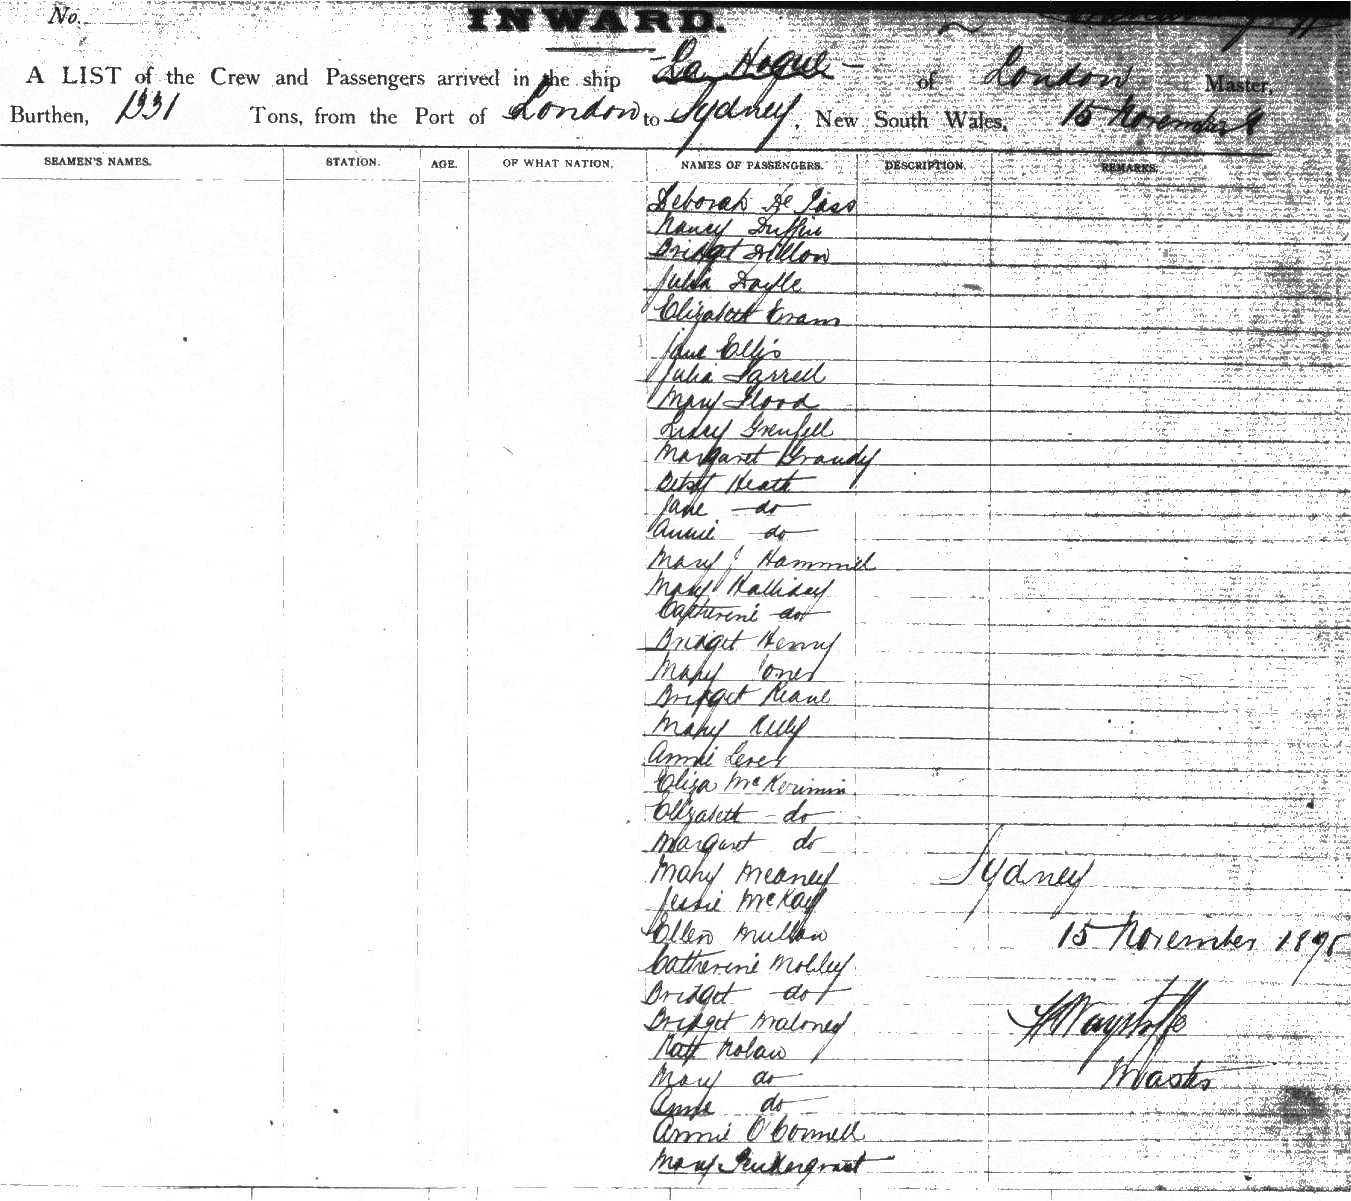 No.
INWARD.
A LIST of the Crew and Passengers arrived in the ship La Hogue of London Master,
Burthen, 1331 Tons, from the Port of London to Sydney, New South Wales, 15 November
SEAMEN'S NAMES. STATION. AGE. OF WHAT NATION. NAMES OF PASSENGERS. DESCRIPTION. REMARKS.
Deborah De Pass
Nancy Duffin
Bridget Dillon
Julia Doyle
Elizabeth Evans
Jane Ellis
Julia Farrell
Mary Flood
Grenfell
Margaret Grandy
Betsy Heath
Jane do
Annie do
Mary J Hammill
Mary Halliday
Catherine do
Bridget Henry
Mary Jones
Bridget Keane
Mary Kelly
Annie Lever
Eliza McKerimin
Elizabeth do
Margaret do
Mary Meaney
Sydney
Jessie McKay
Ellen Mullan
15 November
Catherine Mobley
Bridget do
Bridget Maloney
Nolan
Mary do
Anne do
Annie O'Connell
Mary